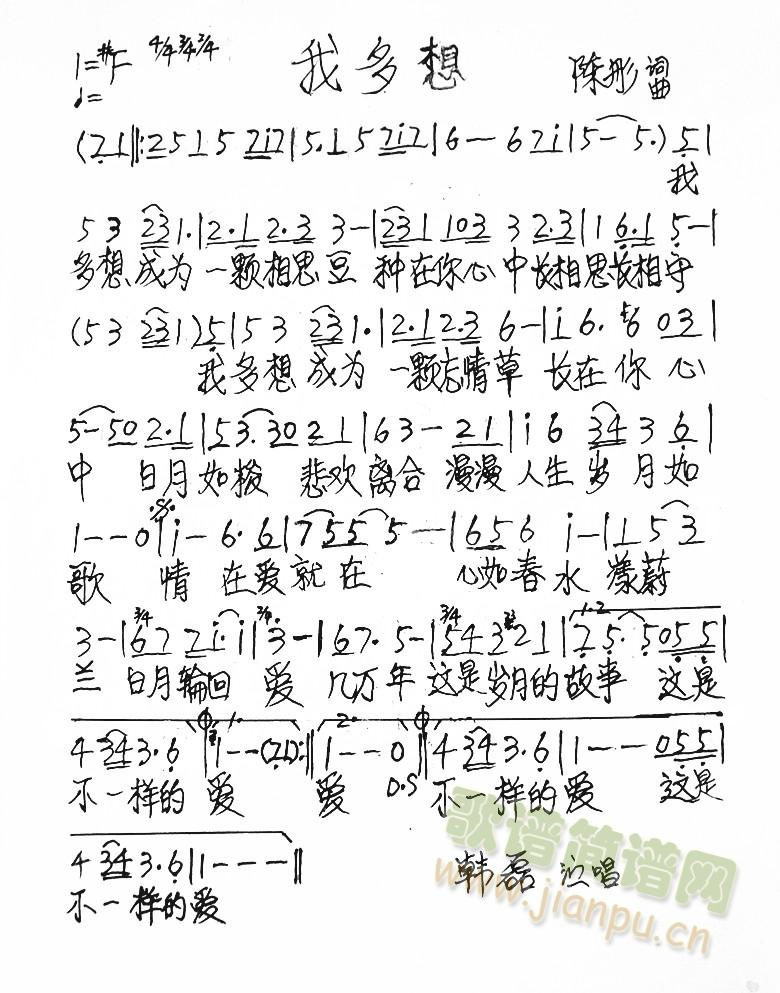 1=#F 4/4 3/4 2/4 我多想 陈彤 词曲
♩=
(2 1‖: 2 5 1 5 2 i 7 | 5. 1 5 2 i 7 | 6 — 6 7 i | 5 — 5.) 5 |
我
5 3 2 3 1. | 2. 1 2. 3 3 — | 2 3 1 1 0 3 3 2. 3 | 1 6. 1 5 — |
多想成为一颗相思豆 种在你心中长相思长相守
(5 3 2 3 1) 5 | 5 3 2 3 1. | 2. 1 2. 3 6 — | i 6. 5 6 0 3 |
我多想成为一颗忘情草 长在你心
5 — 5 0 2. 1 | 5 3. 3 0 2 1 | 6 3 — 2 1 | i 6 3 4 3 6 |
中 日月如梭 悲欢离合 漫漫人生岁月如
1 — — 0 | i — 6. 6 | 7 5 5 5 — — | 6 5 6 i — | 1 5 3
歌 情在爱就在 心如春水漾蔚
3 — | 6 7 7 i. i | 3 — | 6 7. 5 — | 5 4 3 2 1 | 7 5. 5 0 5 5 |
兰 日月轮回 爱几万年 这是岁月的故事 这是
1.
2.
4 3 4 3. 6 ‖ 1 — — (2 1) :‖ 1 — — 0 ‖ 4 3 4 3. 6 | 1 — — — 0 5 5 |
不一样的爱 爱 D.S 不一样的爱 这是
4 3 4 3. 6 | 1 — — — ‖
韩磊 演唱
不一样的爱
歌谱简谱网
www.jianpu.cn